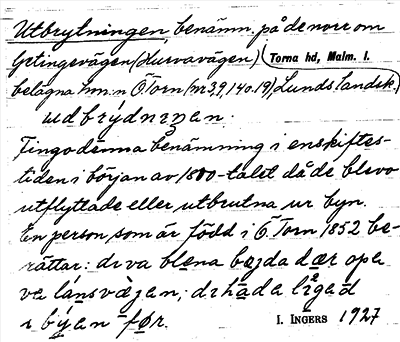 Utbrytningen, benämn. på de norr om
Getingevägen (Hurvavägen) (Torna hd, Malm. l.
belägna hmn. n Ö Torn (nr 39, 140. 19), Lunds Landsk.)
udbrýdnıŋan.
Fingo denna benämning i enskiftes-
tiden i början av 1800-talet då de blevo
utflyttade eller utbrutna ur byn.
En person, som är född i Ö Torn 1852 be-
rättar: di va blena bøjda dær ope
va lánsvæjan; di háda lìgad
i býan før.
I. INGERS 1927